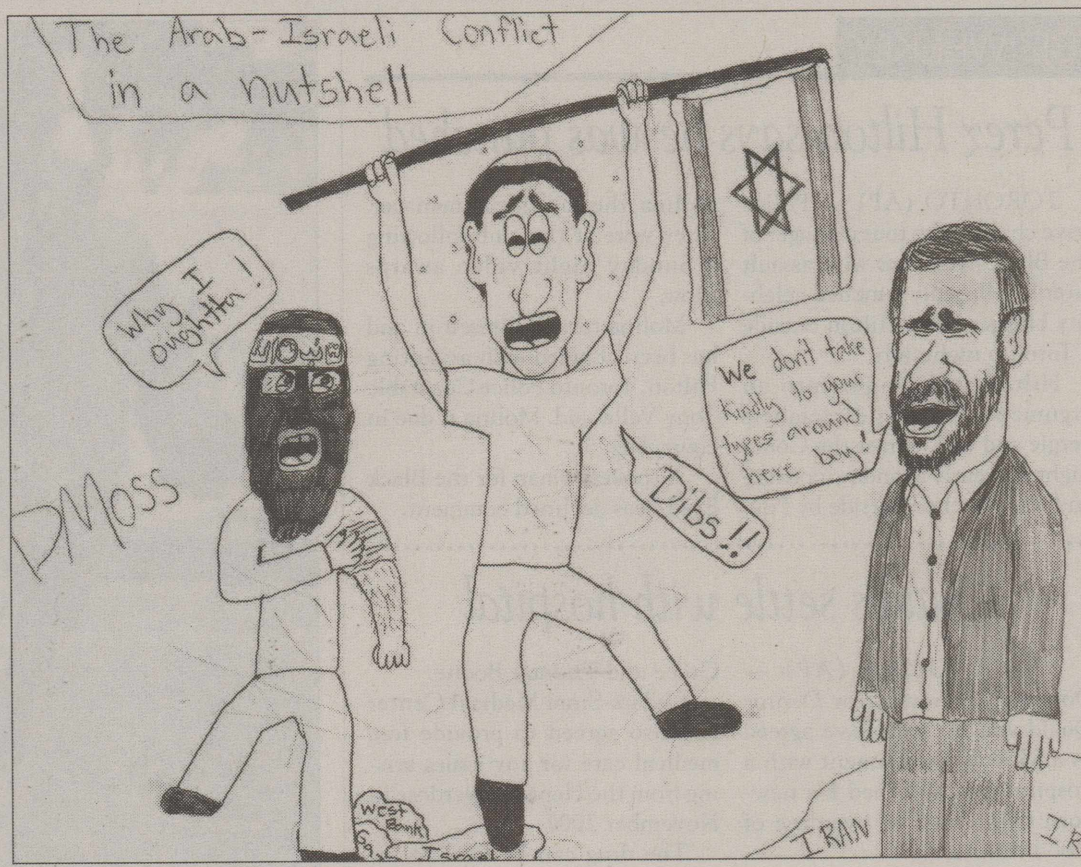 The Arab-Israeli Conflict
in a nutshell
Why, I
oughtta!
We don't take
kindly to your
types around
here boy!
Dibs!!
DMoss
West
Bank
Gaz
Israel
IRAN
IR